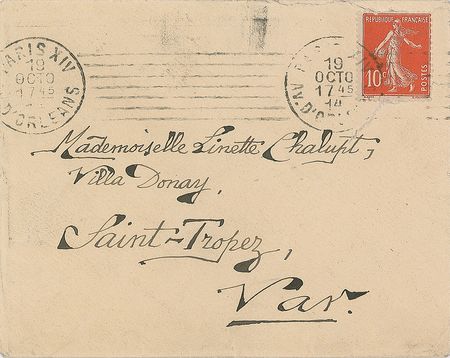 PARIS XIV
19
OCTO
17 45
D'ORLEANS
19
OCTO
17 45
14
AV. D'OR
REPUBLIQUE FRANÇAISE
10c
POSTES
Mademoiselle Linette Chalupt,
Villa Donay,
Saint-Tropez,
Var.